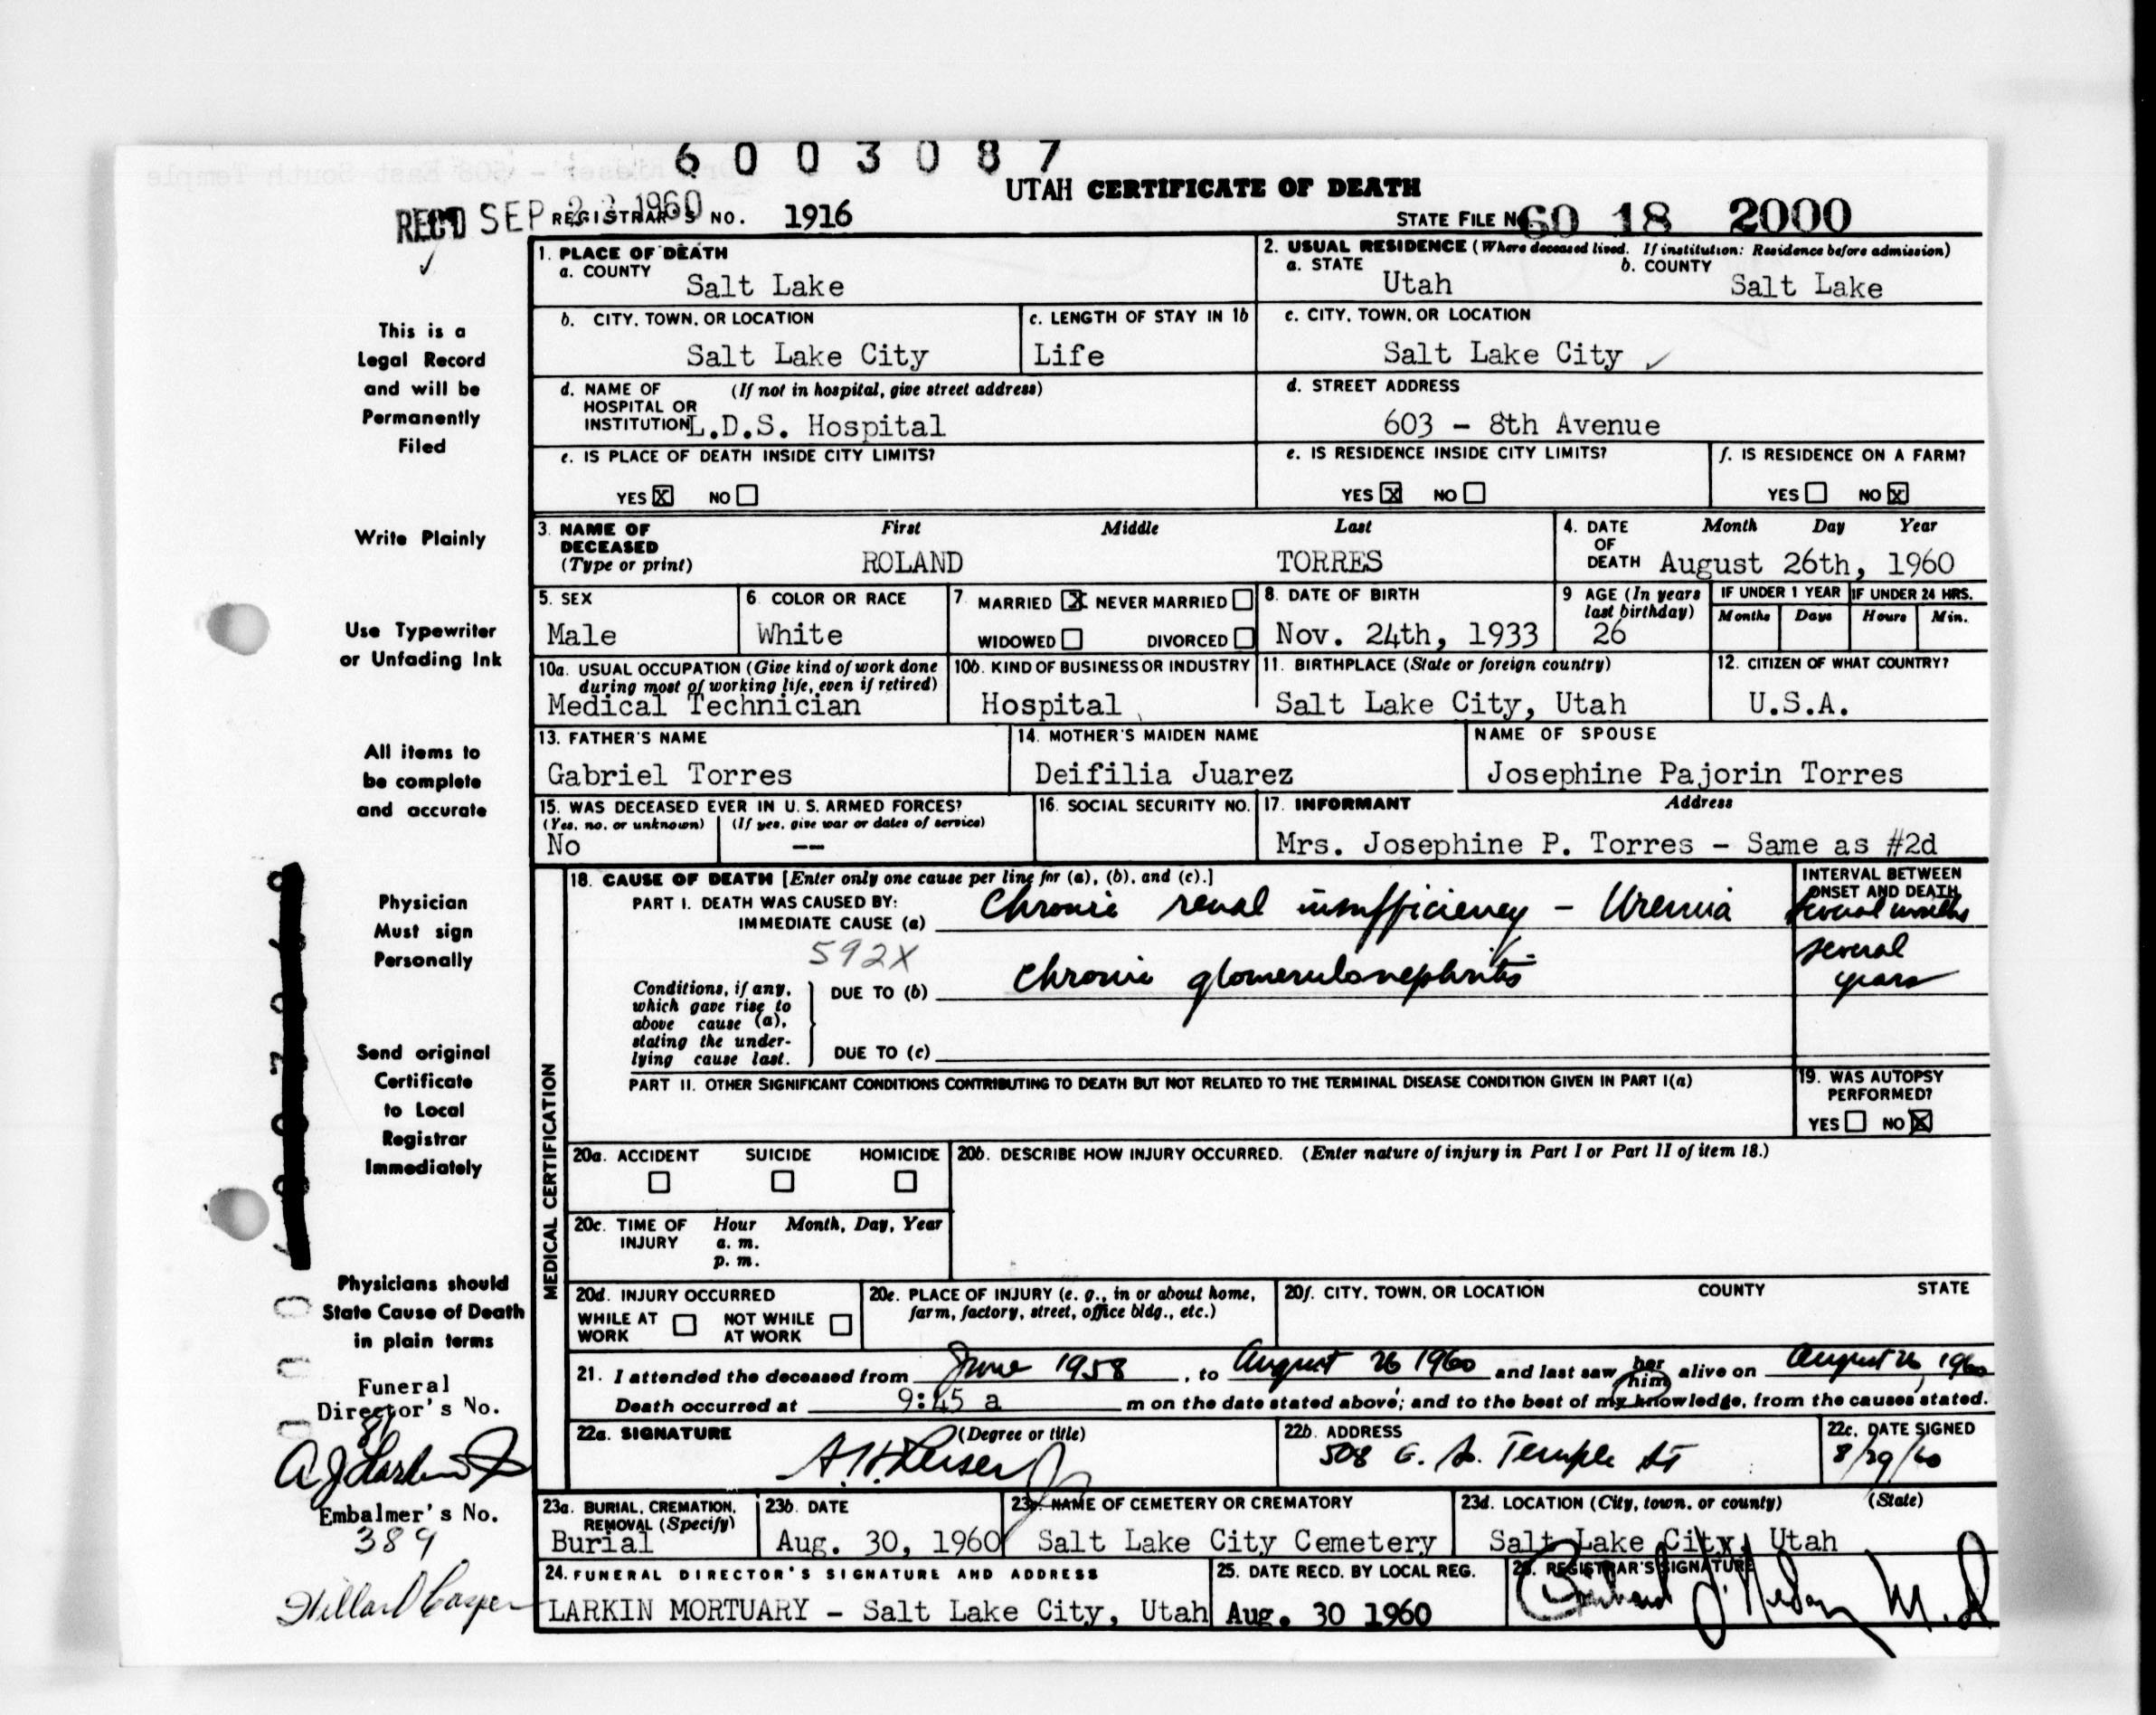 6003087
UTAH CERTIFICATE OF DEATH
REC'D SEP 1960 REGISTRAR'S NO. 1916
STATE FILE NO. 60 18 2000
1. PLACE OF DEATH
a. COUNTY
Salt Lake
2. USUAL RESIDENCE (Where deceased lived. If institution: Residence before admission)
a. STATE
Utah
b. COUNTY
Salt Lake
b. CITY, TOWN, OR LOCATION
Salt Lake City
c. LENGTH OF STAY IN 1b
Life
c. CITY, TOWN, OR LOCATION
Salt Lake City
d. NAME OF (If not in hospital, give street address)
HOSPITAL OR
INSTITUTION L.D.S. Hospital
d. STREET ADDRESS
603 - 8th Avenue
e. IS PLACE OF DEATH INSIDE CITY LIMITS?
YES X NO
e. IS RESIDENCE INSIDE CITY LIMITS?
YES X NO
f. IS RESIDENCE ON A FARM?
YES NO X
3. NAME OF
DECEASED
(Type or print)
First Middle Last
ROLAND TORRES
4. DATE Month Day Year
OF
DEATH August 26th, 1960
5. SEX
Male
6 COLOR OR RACE
White
7 MARRIED X NEVER MARRIED
WIDOWED DIVORCED
8. DATE OF BIRTH
Nov. 24th, 1933
9 AGE (In years
last birthday)
26
IF UNDER 1 YEAR IF UNDER 24 HRS.
Months Days Hours Min.
10a. USUAL OCCUPATION (Give kind of work done
during most of working life, even if retired)
Medical Technician
10b. KIND OF BUSINESS OR INDUSTRY
Hospital
11. BIRTHPLACE (State or foreign country)
Salt Lake City, Utah
12. CITIZEN OF WHAT COUNTRY?
U.S.A.
13. FATHER'S NAME
Gabriel Torres
14. MOTHER'S MAIDEN NAME
Deifilia Juarez
NAME OF SPOUSE
Josephine Pajorin Torres
15. WAS DECEASED EVER IN U. S. ARMED FORCES?
(Yes, no, or unknown) (If yes, give war or dates of service)
No --
16. SOCIAL SECURITY NO.
17. INFORMANT Address
Mrs. Josephine P. Torres - Same as #2d
MEDICAL CERTIFICATION
18. CAUSE OF DEATH [Enter only one cause per line for (a), (b), and (c).]
PART I. DEATH WAS CAUSED BY:
IMMEDIATE CAUSE (a) Chronic renal insufficiency - Uremia
INTERVAL BETWEEN
ONSET AND DEATH
several months
592X
Conditions, if any,
which gave rise to
above cause (a),
stating the under-
lying cause last.
DUE TO (b) Chronic glomerulonephritis
several
years
DUE TO (c)
PART II. OTHER SIGNIFICANT CONDITIONS CONTRIBUTING TO DEATH BUT NOT RELATED TO THE TERMINAL DISEASE CONDITION GIVEN IN PART I(a)
19. WAS AUTOPSY
PERFORMED?
YES NO X
20a. ACCIDENT SUICIDE HOMICIDE
20b. DESCRIBE HOW INJURY OCCURRED. (Enter nature of injury in Part I or Part II of item 18.)
20c. TIME OF Hour Month, Day, Year
INJURY a. m.
p. m.
20d. INJURY OCCURRED
WHILE AT NOT WHILE
WORK AT WORK
20e. PLACE OF INJURY (e. g., in or about home,
farm, factory, street, office bldg., etc.)
20f. CITY, TOWN, OR LOCATION COUNTY STATE
21. I attended the deceased from June 1958, to August 26 1960 and last saw her him alive on August 26, 1960
Death occurred at 9:45 a m on the date stated above; and to the best of my knowledge, from the causes stated.
22a. SIGNATURE (Degree or title)
22b. ADDRESS
508 E. So. Temple St
22c. DATE SIGNED
8/29/60
23a. BURIAL, CREMATION,
REMOVAL (Specify)
Burial
23b. DATE
Aug. 30, 1960
23c. NAME OF CEMETERY OR CREMATORY
Salt Lake City Cemetery
23d. LOCATION (City, town, or county) (State)
Salt Lake City, Utah
24. FUNERAL DIRECTOR'S SIGNATURE AND ADDRESS
LARKIN MORTUARY - Salt Lake City, Utah
25. DATE RECD. BY LOCAL REG.
Aug. 30 1960
26. REGISTRAR'S SIGNATURE
This is a
Legal Record
and will be
Permanently
Filed
Write Plainly
Use Typewriter
or Unfading Ink
All items to
be complete
and accurate
Physician
Must sign
Personally
Send original
Certificate
to Local
Registrar
Immediately
Physicians should
State Cause of Death
in plain terms
Funeral
Director's No.
Embalmer's No.
389